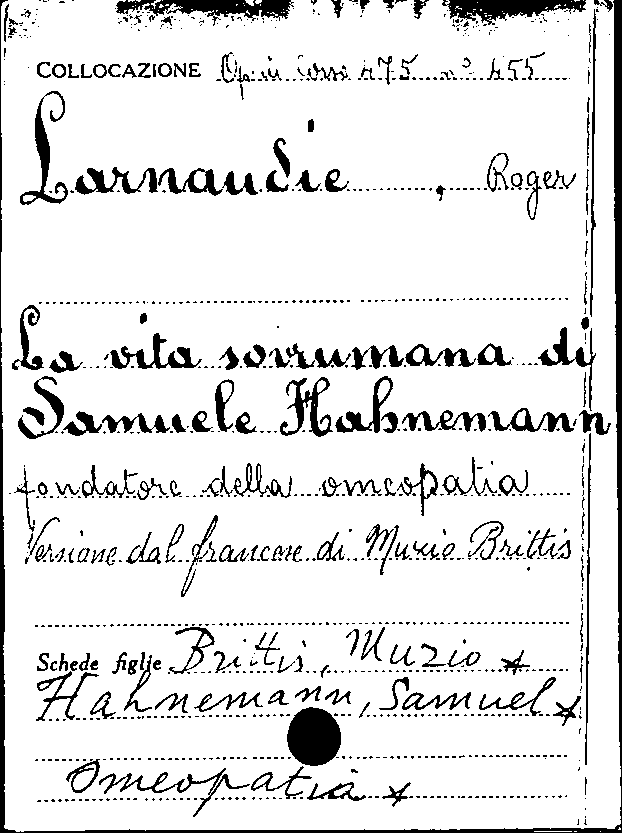 COLLOCAZIONE Op. in cosse 475 n° 455
Larnaudie, Roger
La vita sovrumana di
Samuele Hahnemann
fondatore della omeopatia
Versione dal francese di Muzio Brittis
Schede figlie Brittis, Muzio x
Hahnemann, Samuel x
Omeopatia x